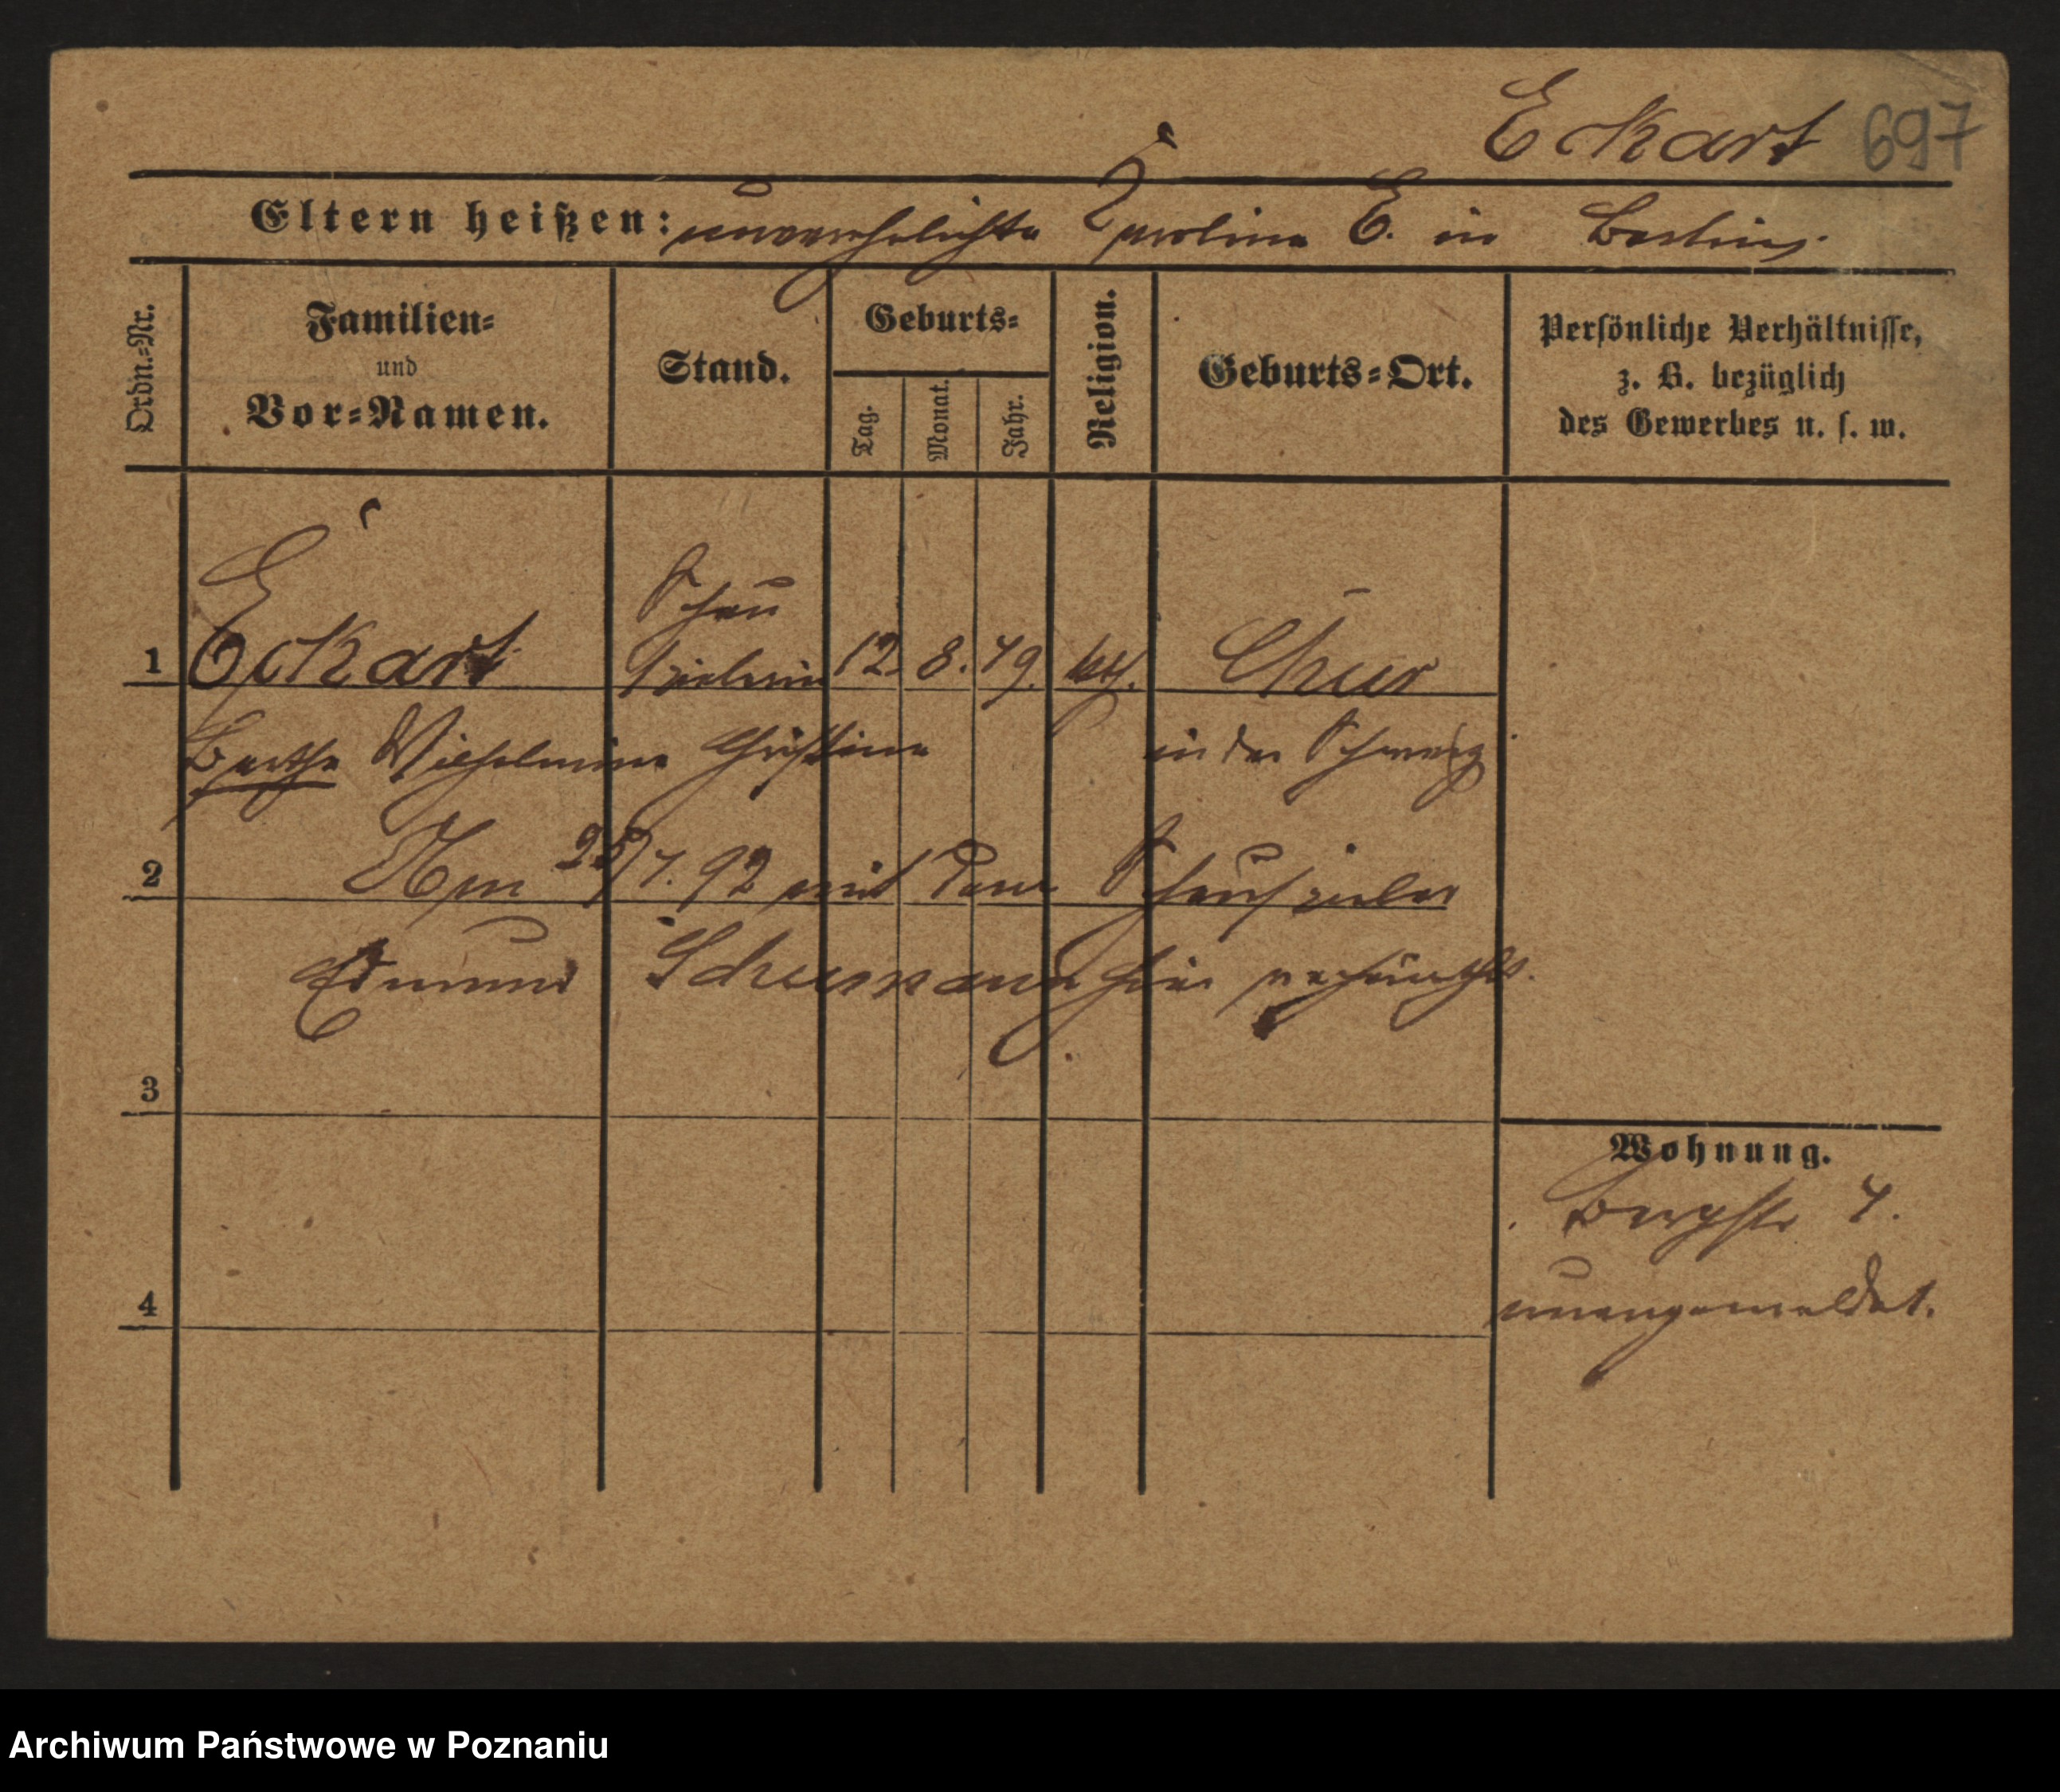 Eckart 697
Eltern heißen: unverehelichte Karoline E. in Berlin.
Ordn.-Nr.
Familien-
und
Vor-Namen.
Stand.
Geburts-
Tag.
Monat.
Jahr.
Religion.
Geburts-Ort.
Persönliche Verhältnisse,
z. B. bezüglich
des Gewerbes u. s. w.
Schau
1 Eckart spielerin 12. 8. 79. kth. Chur
Bertha Wilhelmine Christine in der Schweiz
2 Am 25/7. 92 mit dem Schauspieler
Edmund Schumann hier
3
Wohnung.
Bergstr 7.
4 unangemeldet.
Archiwum Państwowe w Poznaniu